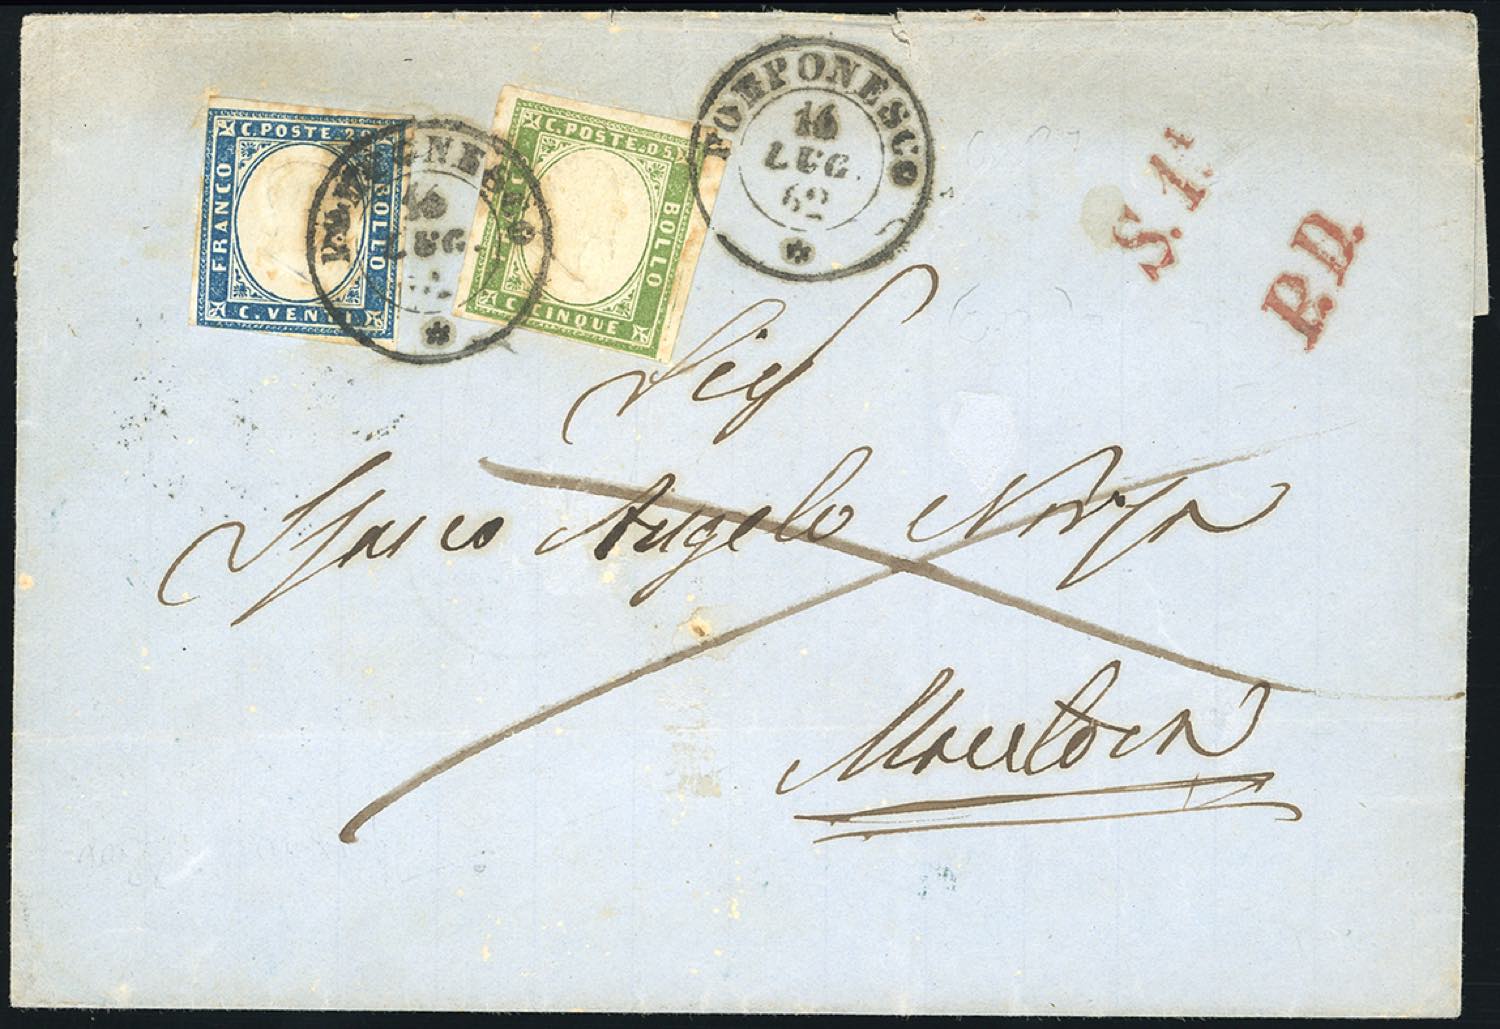 C. POSTE 20
FRANCO
BOLLO
C. VENTI
C. POSTE. 05.
BOLLO
C. CINQUE
POMPONESCO
16
LUG.
POMPONESCO
16
LUG.
62
S. 1.
P.D.
Sig
Angelo Norza
Mantova